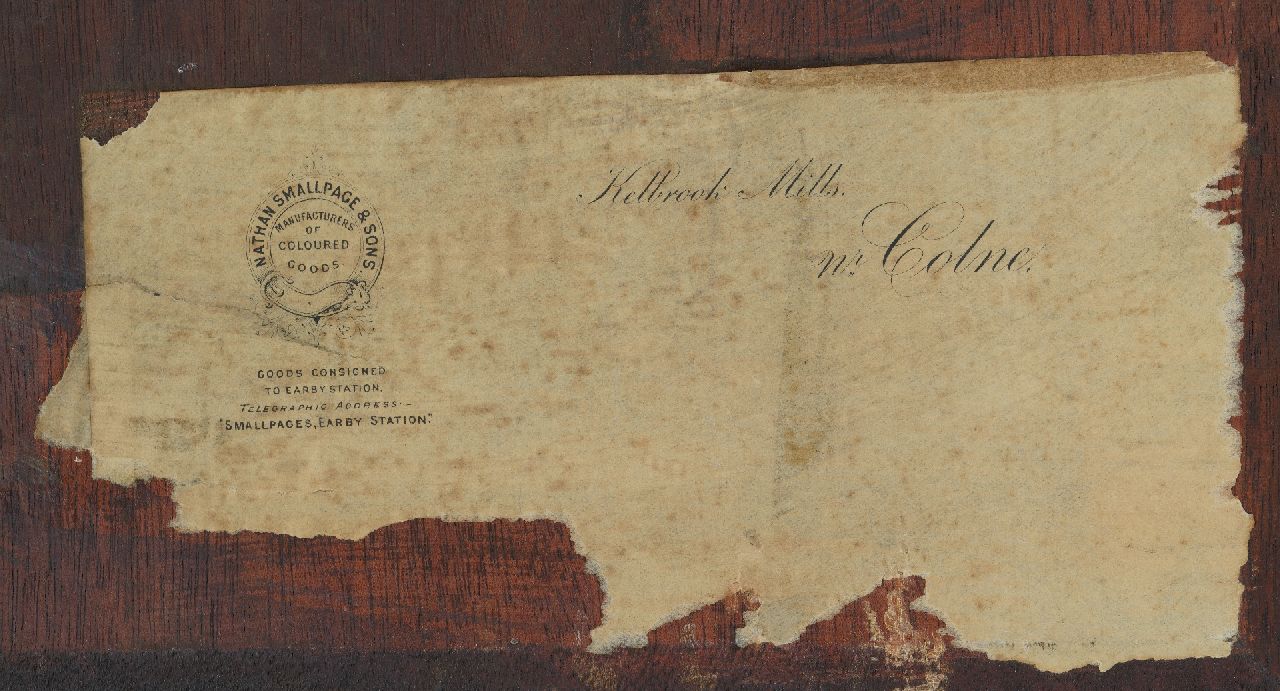 NATHAN SMALLPAGE & SONS
MANUFACTURERS
OF
COLOURED
GOODS
GOODS CONSIGNED
TO EARBY STATION.
TELEGRAPHIC ADDRESS:-
"SMALLPAGES, EARBY STATION."
Kelbrook Mills.
nr. Colne.